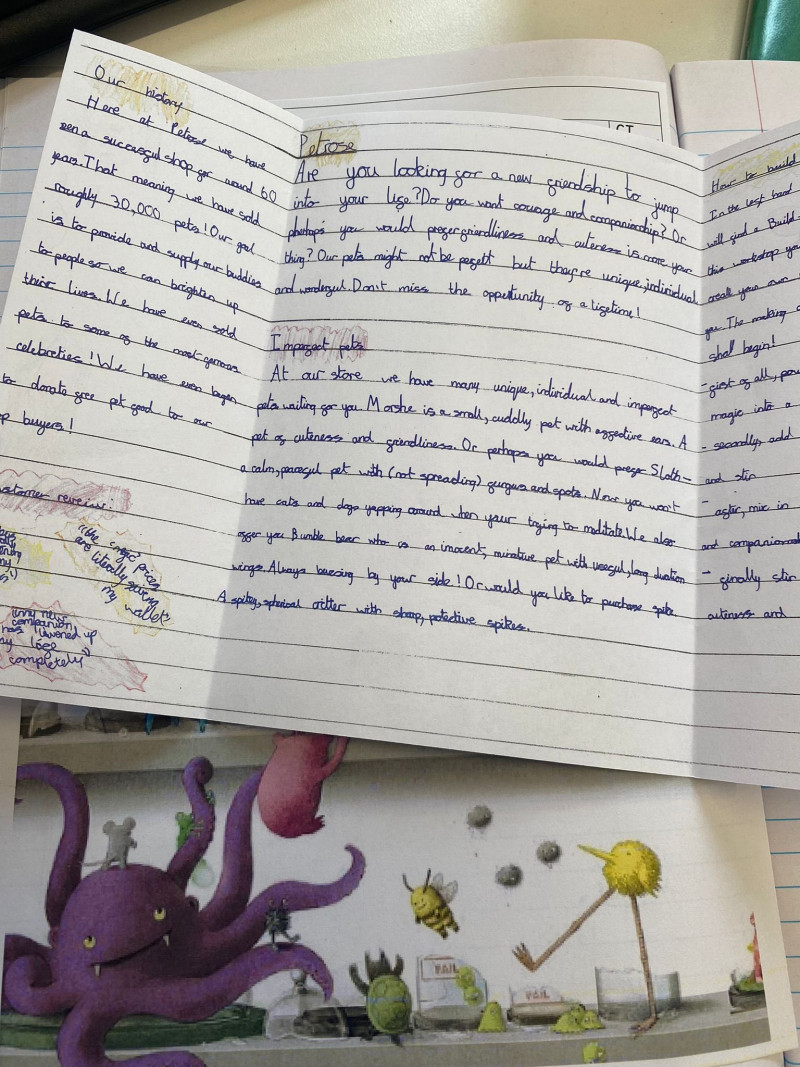 Our history
Here at Petrose we have
rena successful shop for around 60
years. That meaning we have sold
roughly 30,000 pets! Our goal
is to provide and supply our buddies
to people so we can brighten up
their lives. We have even sold
pets to some of the most famous
celebreties! We have even began
to donate free pet food to our
buyers!
reveiws.
"the cheap prices
are literally saving
my wallet"
"my new
companion
has livened up
my life
completely"
Petrose
Are you looking for a new friendship to jump
into your life? Do you want courage and companionship? Or
perhaps you would prefer friendliness and cuteness is more your
thing? Our pets might not be perfect but they're unique, individual
and wonderful. Don't miss the oppertunity of a lifetime!
Imperfect pets
At our store we have many unique, individual and imperfect
pets waiting for you. Morshe is a small, cuddly pet with affective ears. A
pet of cuteness and friendliness. Or perhaps you would prefer Sloth-
a calm, peaceful pet with (not spreading) fungus and spots. Now you won't
have cats and dogs yapping around when your trying to meditate. We also
offer you Bumble bear who is an inocent, minative pet with useful, long duration
wings. Always buzzing by your side! Or would you like to purchase spike.
A spikey, spherical critter with sharp, potective spikes.
How to build
In the last
will find a Build
this workshop you
create your own
you. The making
shall begin!
- first of all, pour
magic into a
- secondly, add
and stir
- after, mix in
and companion
- finally stir
cuteness and
FAIL
FAIL